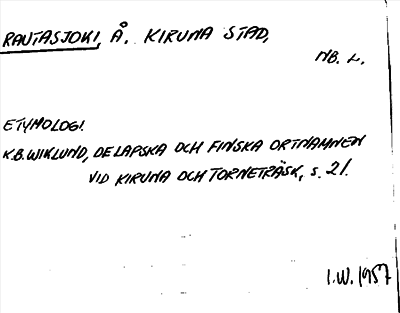 RAUTASJOKI, Å. KIRUNA STAD,
NB. L.
ETYMOLOGI.
K.B. WIKLUND, DE LAPSKA OCH FINSKA ORTNAMNEN
VID KIRUNA OCH TORNETRÄSK, S. 21.
I.W. 1957